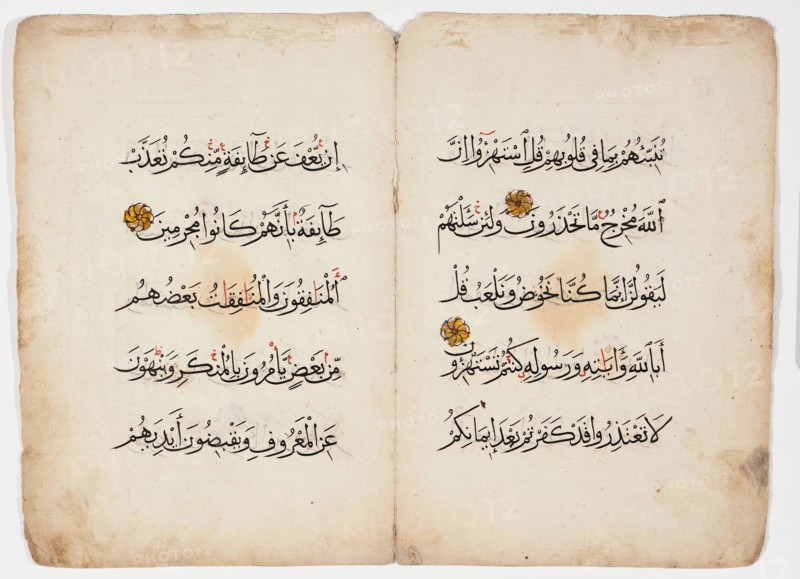 تُنَبِّئُهُمْ بِمَا فِي قُلُوبِهِمْ قُلِ ٱسْتَهْزِءُوا إِنَّ
ٱللَّهَ مُخْرِجٌ مَّا تَحْذَرُونَ وَلَئِن سَأَلْتَهُمْ
لَيَقُولُنَّ إِنَّمَا كُنَّا نَخُوضُ وَنَلْعَبُ قُلْ
أَبِاللَّهِ وَآيَاتِهِ وَرَسُولِهِ كُنْتُمْ تَسْتَهْزِءُونَ
لَا تَعْتَذِرُوا قَدْ كَفَرْتُمْ بَعْدَ إِيمَانِكُمْ
إِنْ يُعْفَ عَنْ طَآئِفَةٍ مِّنْكُمْ تُعَذَّبْ
طَآئِفَةٌ بِأَنَّهُمْ كَانُوا مُجْرِمِينَ
ٱلْمُنَافِقُونَ وَالْمُنَافِقَاتُ بَعْضُهُمْ
مِّنْ بَعْضٍ يَأْمُرُونَ بِالْمُنْكَرِ وَيَنْهَوْنَ
عَنِ الْمَعْرُوفِ وَيَقْبِضُونَ أَيْدِيَهُمْ
PHOTO12